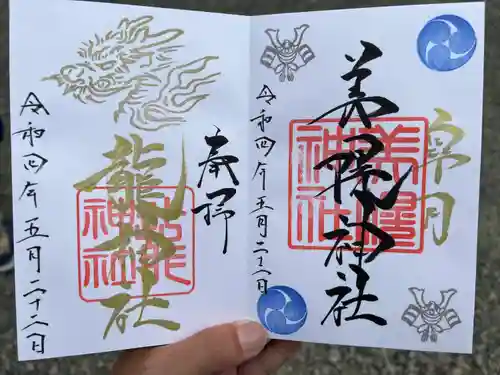 皐月
美幌神社
美幌神社
令和四年五月二十二日
奉拝
龍神社
令和四年五月二十二日